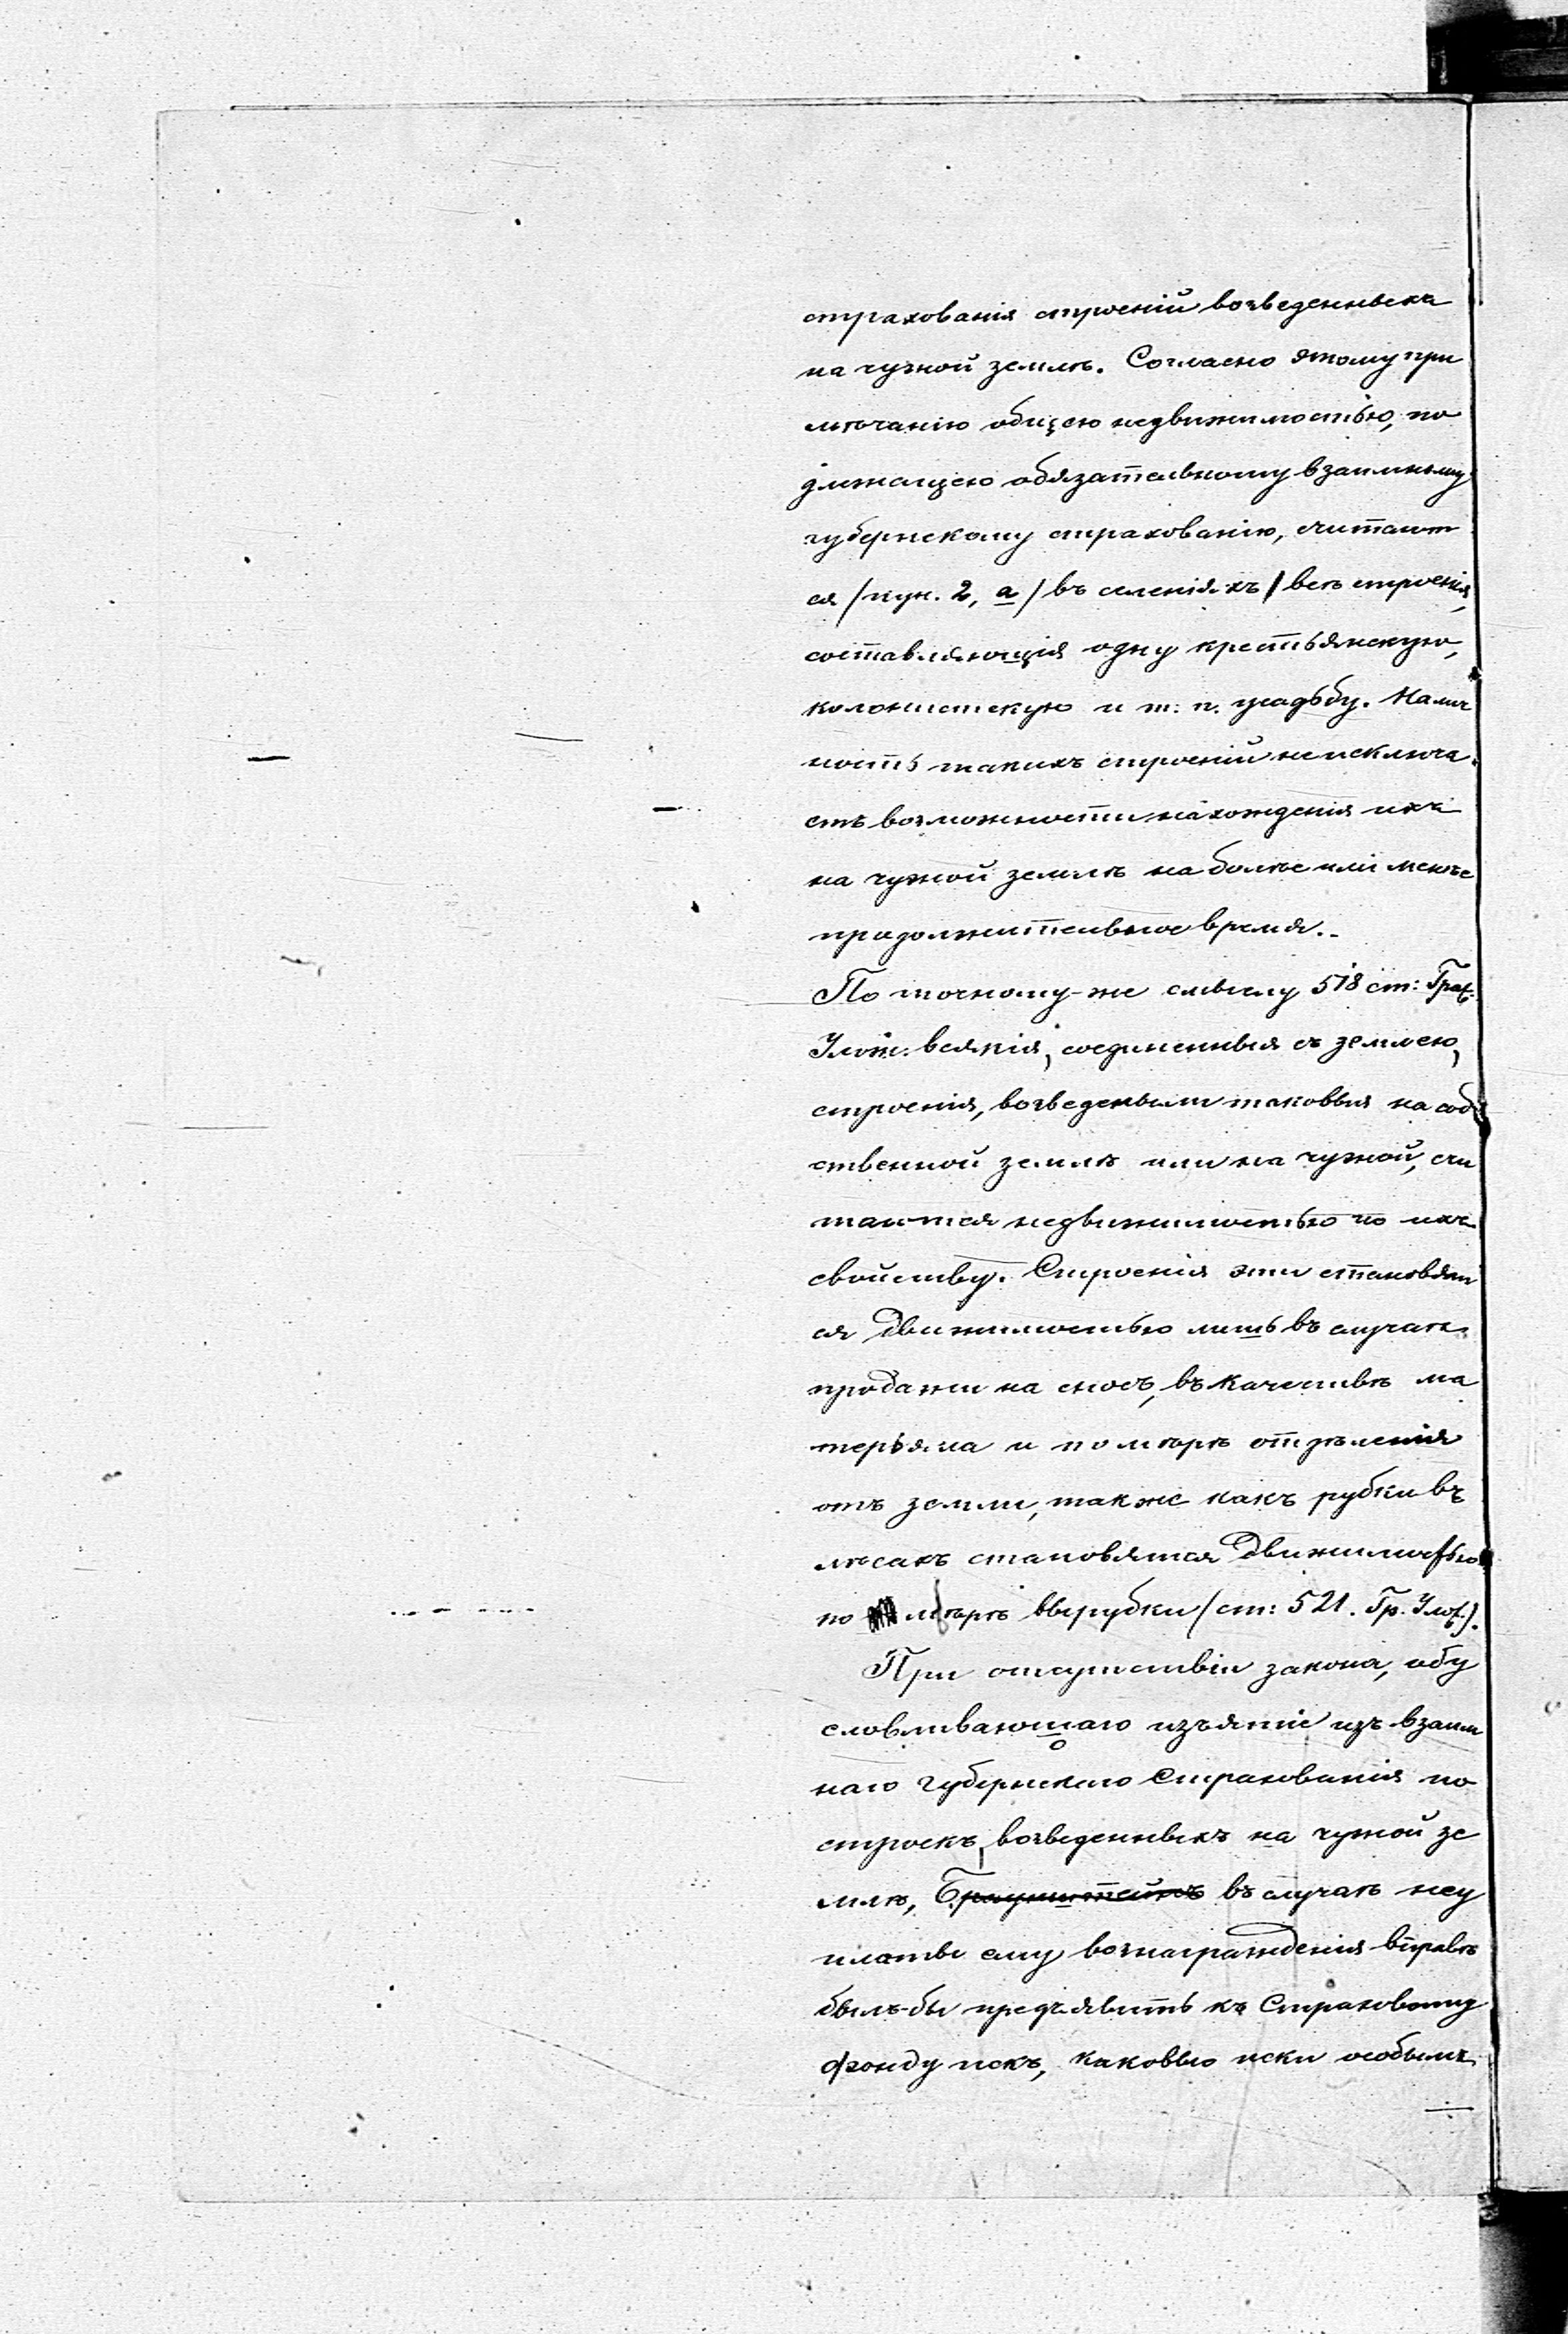 страхованія строеній возведенныхъ
на чужой землѣ. Согласно этому при
мѣчанію общею недвижимостью, по
длжащею обязательному взаимному
губернскому страхованію, считают
ся /пун. 2, а/ въ селеніяхъ / всѣ строенія,
составляющія одну крестьянскую,
колонистскую и т. п. усадьбу. Налич
ность такихъ строеній не исключа
етъ возможности нахожденія ихъ
на чужой землѣ на болѣе или менѣе
продолжительное время.
По точному-же смыслу 518 ст: Граж.
Улож. всякія, соединенныя съ землею,
строенія, возведены ли таковыя на соб
ственной землѣ или на чужой, счи
таются недвижимостью по ихъ
свойству. Строенія эти становят
ся движимостью лишь въ случаѣ
продажи на сносъ, въ качествѣ ма
терьяла и по мѣрѣ отдѣленія
отъ земли, также какъ рубки въ
лѣсахъ становятся движимостью
по мѣрѣ вырубки /ст: 521. Гр. Улож.).
При отсутствіи закона, обу
словливающаго изъятіе изъ взаим
наго губернскаго страхованія по
строекъ, возведенныхъ на чужой зе
млѣ, Браунштейнъ въ случаѣ неу
платы ему вознагражденія вправѣ
былъ-бы предъявить къ Страховому
фонду искъ, каковые иски особымъ